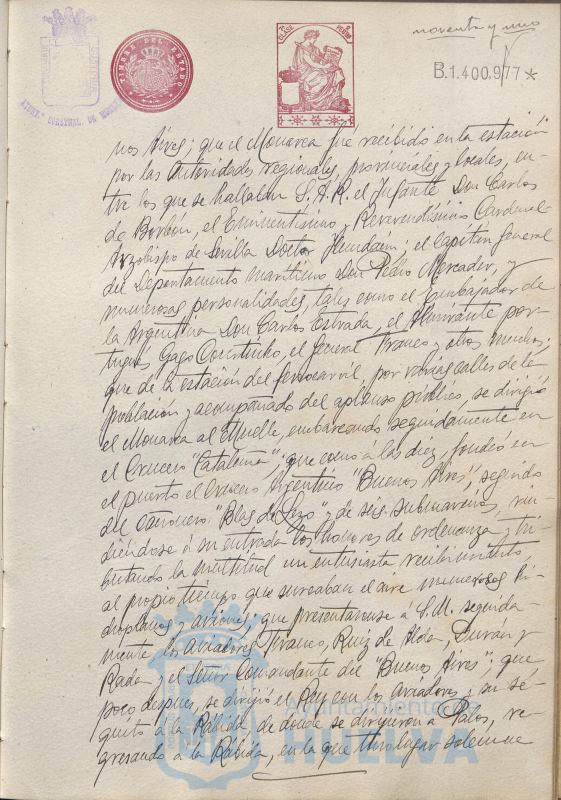 noventa y uno
TIMBRE DEL ESTADO
B.1.400.977 *
nos Aires; que el Monarca fué recibido en la estación
por las Autoridades regionales, provinciales y locales, en-
tre los que se hallaban S.A.R. el Infante Don Carlos
de Borbón, el Eminentísimo y Reverendísimo Cardenal-
Arzobispo de Sevilla Doctor Ilundain; el Capitán General
del Departamento marítimo Don Pedro Mercader, y
numerosas personalidades, tales como el Embajador de
la Argentina Don Carlos Estrada, el Almirante por-
tugués Gago Coutinho, el General Franco y otros muchos;
que de la estación del ferrocarril, por varias calles de la
población y acompañado del aplauso público, se dirigió
el Monarca al Muelle, embarcando seguidamente en
el Crucero "Cataluña"; que como á las diez, fondeó en
el puerto el Crucero Argentino "Buenos Aires", seguido
del Cañonero "Blas de Lezo" y de seis submarinos, rin-
diéndose á su entrada los honores de ordenanza y tri-
butando la multitud un entusiasta recibimiento
al propio tiempo que surcaban el aire numerosos hi-
droplanos y aviones; que presentáronse á S.M. seguida-
mente los aviadores Franco, Ruiz de Alda, Durán y
Rada y el Señor Comandante del "Buenos Aires"; que
poco después, se dirigió el Rey con los Aviadores y su sé-
quito á la Rábida, de donde se dirigieron a Palos, re-
gresando á la Rábida, en la que tuvo lugar solemne
Ayuntamiento de
HUELVA